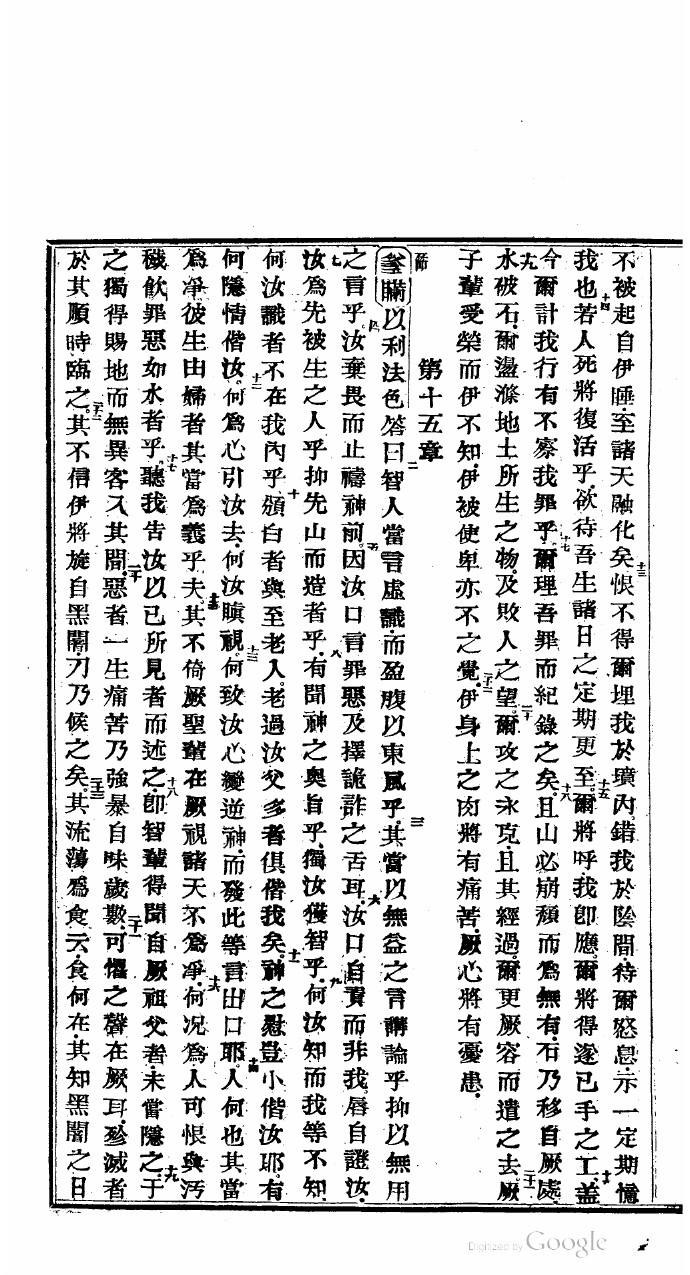 不被起自伊睡至諸天融化矣十三恨不得爾埋我於壙內錯我於陰間待爾怒息示一定期憶
我也十四若人死將復活乎欲待吾生諸日之定期更至十五爾將呼我卽應爾將得遂已手之工十六蓋
今爾計我行有不察我罪乎十七爾理吾罪而紀錄之矣十八且山必崩頹而爲無有石乃移自厥處十九
水破石爾盪滌地土所生之物及敗人之望二十爾攻之永克且其經過爾更厥容而遣之去二十一厥
子輩受榮而伊不知伊被使卑亦不之覺二十二伊身上之肉將有痛苦厥心將有憂患
第十五章
一節以利法色答曰二智人當言虛識而盈腹以東風乎三其當以無益之言講論乎抑以無用
之言乎四汝棄畏而止禱神前五因汝口言罪惡及擇詭詐之舌耳六汝口自責而非我唇自證汝
七汝爲先被生之人乎抑先山而造者乎八有聞神之奧旨乎獨汝獲智乎九何汝知而我等不知
何汝識者不在我內乎十頒白者與至老人老過汝父多者俱偕我矣十一神之慰豈小偕汝耶有
何隱情偕汝十二何爲心引汝去何汝瞋視十三何致汝心變逆神而發此等言出口耶十四人何也其當
爲凈彼生由婦者其當爲義乎十五夫其不倚厥聖輩在厥視諸天不爲凈十六何况爲人可恨與汚
穢飲罪惡如水者乎十七聽我吿汝以己所見者而述之十八卽智輩得聞自厥祖父者未嘗隱之十九于
之獨得賜地而無異客入其間二十惡者一生痛苦乃強暴自味歲數二十一可懼之聲在厥耳殄滅者
於其順時臨之二十二其不信伊將旋自黑闇刀乃候之矣二十三其流蕩爲食云食何在其知黑闇之日
Digitized by Google